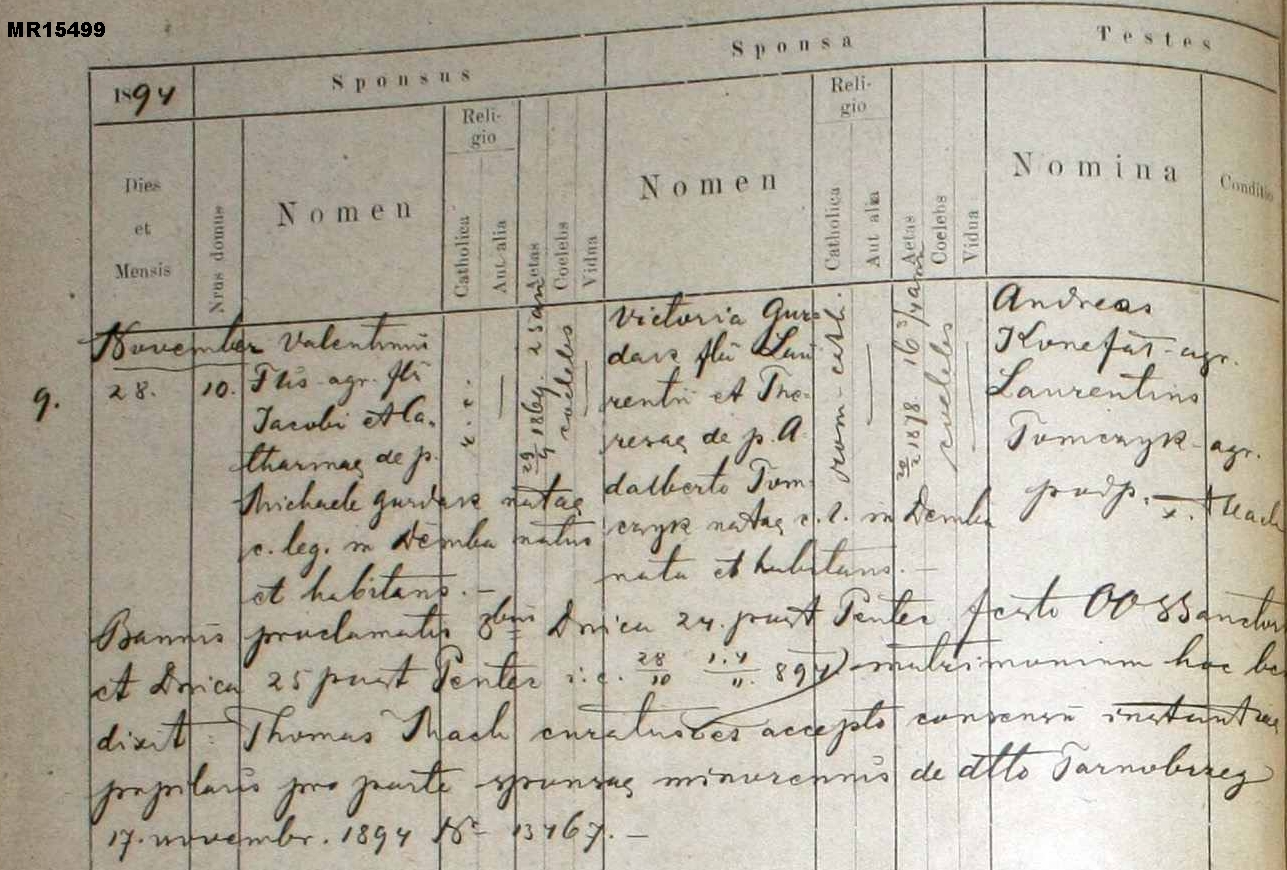 MR15499
1894
Sponsus
Sponsa
Testes
Dies et Mensis
Nrus domus
Nomen
Religio
Catholica
Aut alia
Aetas
Coelebs
Vidua
Nomen
Religio
Catholica
Aut alia
Aetas
Coelebs
Vidua
Nomina
Conditio
November
9.
28.
10.
Valentinus
agr. fil
Jacobi et Ca-
tharinae de p.
Michaele Gurdak natae
c. leg. in Demba natus
et habitans. —
r. c.
29/4 1869. 25 an
coelebs
Victoria Gur=
dak fil Lau
rentii et The-
resae de p. A
dalberto Tom
czyk natae c. l. in Demba
nata et habitans. —
rom-cath.
1878 16 3/4 an
coelebs
Andreas
Konefał - agr.
Laurentius
Tomczyk - agr.
podp. Mach
Bannis proclamatis 3bus Dnica 24. post Pentec festo OO SS anctor
et Dnica 25 post Pentec i: e. 28/10 1.4/11. 894) matrimonium hoc be
dixit: Thomas Mach curatus accepto consensu instantiae
pupilaris pro parte sponsae minorennis de dtto Tarnobrzeg
17. novembr. 1894 Nr 13467. —